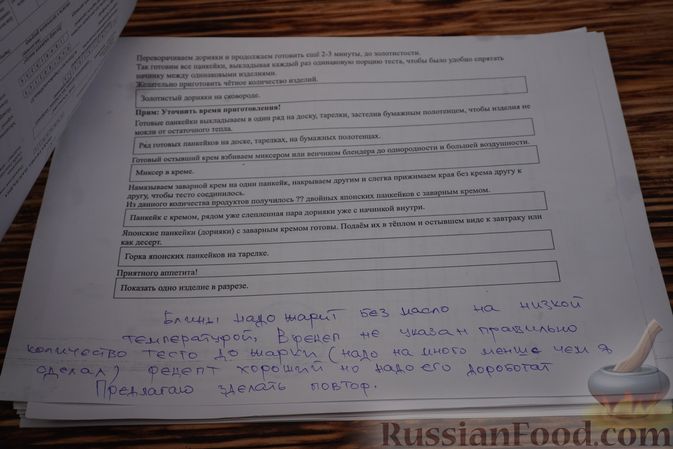 Переворачиваем дорияки и продолжаем готовить ещё 2-3 минуты, до золотистости.
Так готовим все панкейки, выкладывая каждый раз одинаковую порцию теста, чтобы было удобно спрятать
начинку между одинаковыми изделиями.
Желательно приготовить чётное количество изделий.
Золотистый дорияки на сковороде.
Прим: Уточнить время приготовления!
Готовые панкейки выкладываем в один ряд на доску, тарелки, застелив бумажным полотенцем, чтобы изделия не
мокли от остаточного тепла.
Ряд готовых панкейков на доске, тарелках, на бумажных полотенцах.
Готовый остывший крем взбиваем миксером или венчиком блендера до однородности и большей воздушности.
Миксер в креме.
Намазываем заварной крем на один панкейк, накрываем другим и слегка прижимаем края без крема другу к
другу, чтобы тесто соединилось.
Из данного количества продуктов получилось ?? двойных японских панкейков с заварным кремом.
Панкейк с кремом, рядом уже слепленная пара дорияки уже с начинкой внутри.
Японские панкейки (дорияки) с заварным кремом готовы. Подаём их в тёплом и остывшем виде к завтраку или
как десерт.
Горка японских панкейков на тарелке.
Приятного аппетита!
Показать одно изделие в разрезе.
Блины надо жарит без масло на низкой
температурой, В рецеп не указан правильно
количество тесто до жарки (надо на много менше чем я
сделал) рецепт хороший но надо его доработат
Предлагаю зделать повтор.
RussianFood.com